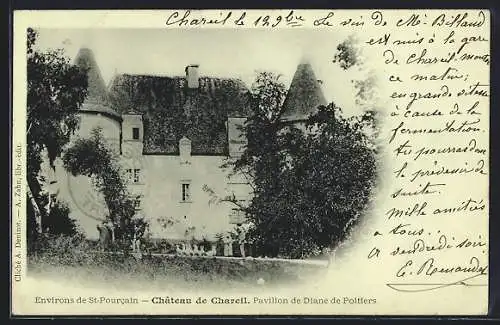 Chareil le 12 9bre Le vin de Mr Billaud
est mis à la gare
de Chareil. ment
ce matin;
en grande vitesse
à cause de la
fermentation.
Tu pourras
le prévenir de
suite.
Mille amitiés
à tous.
à vendredi soir
Cliché A. Deninot. — A. Zahn, libr.-édit.
Environs de St-Pourçain — Château de Chareil. Pavillon de Diane de Poitiers